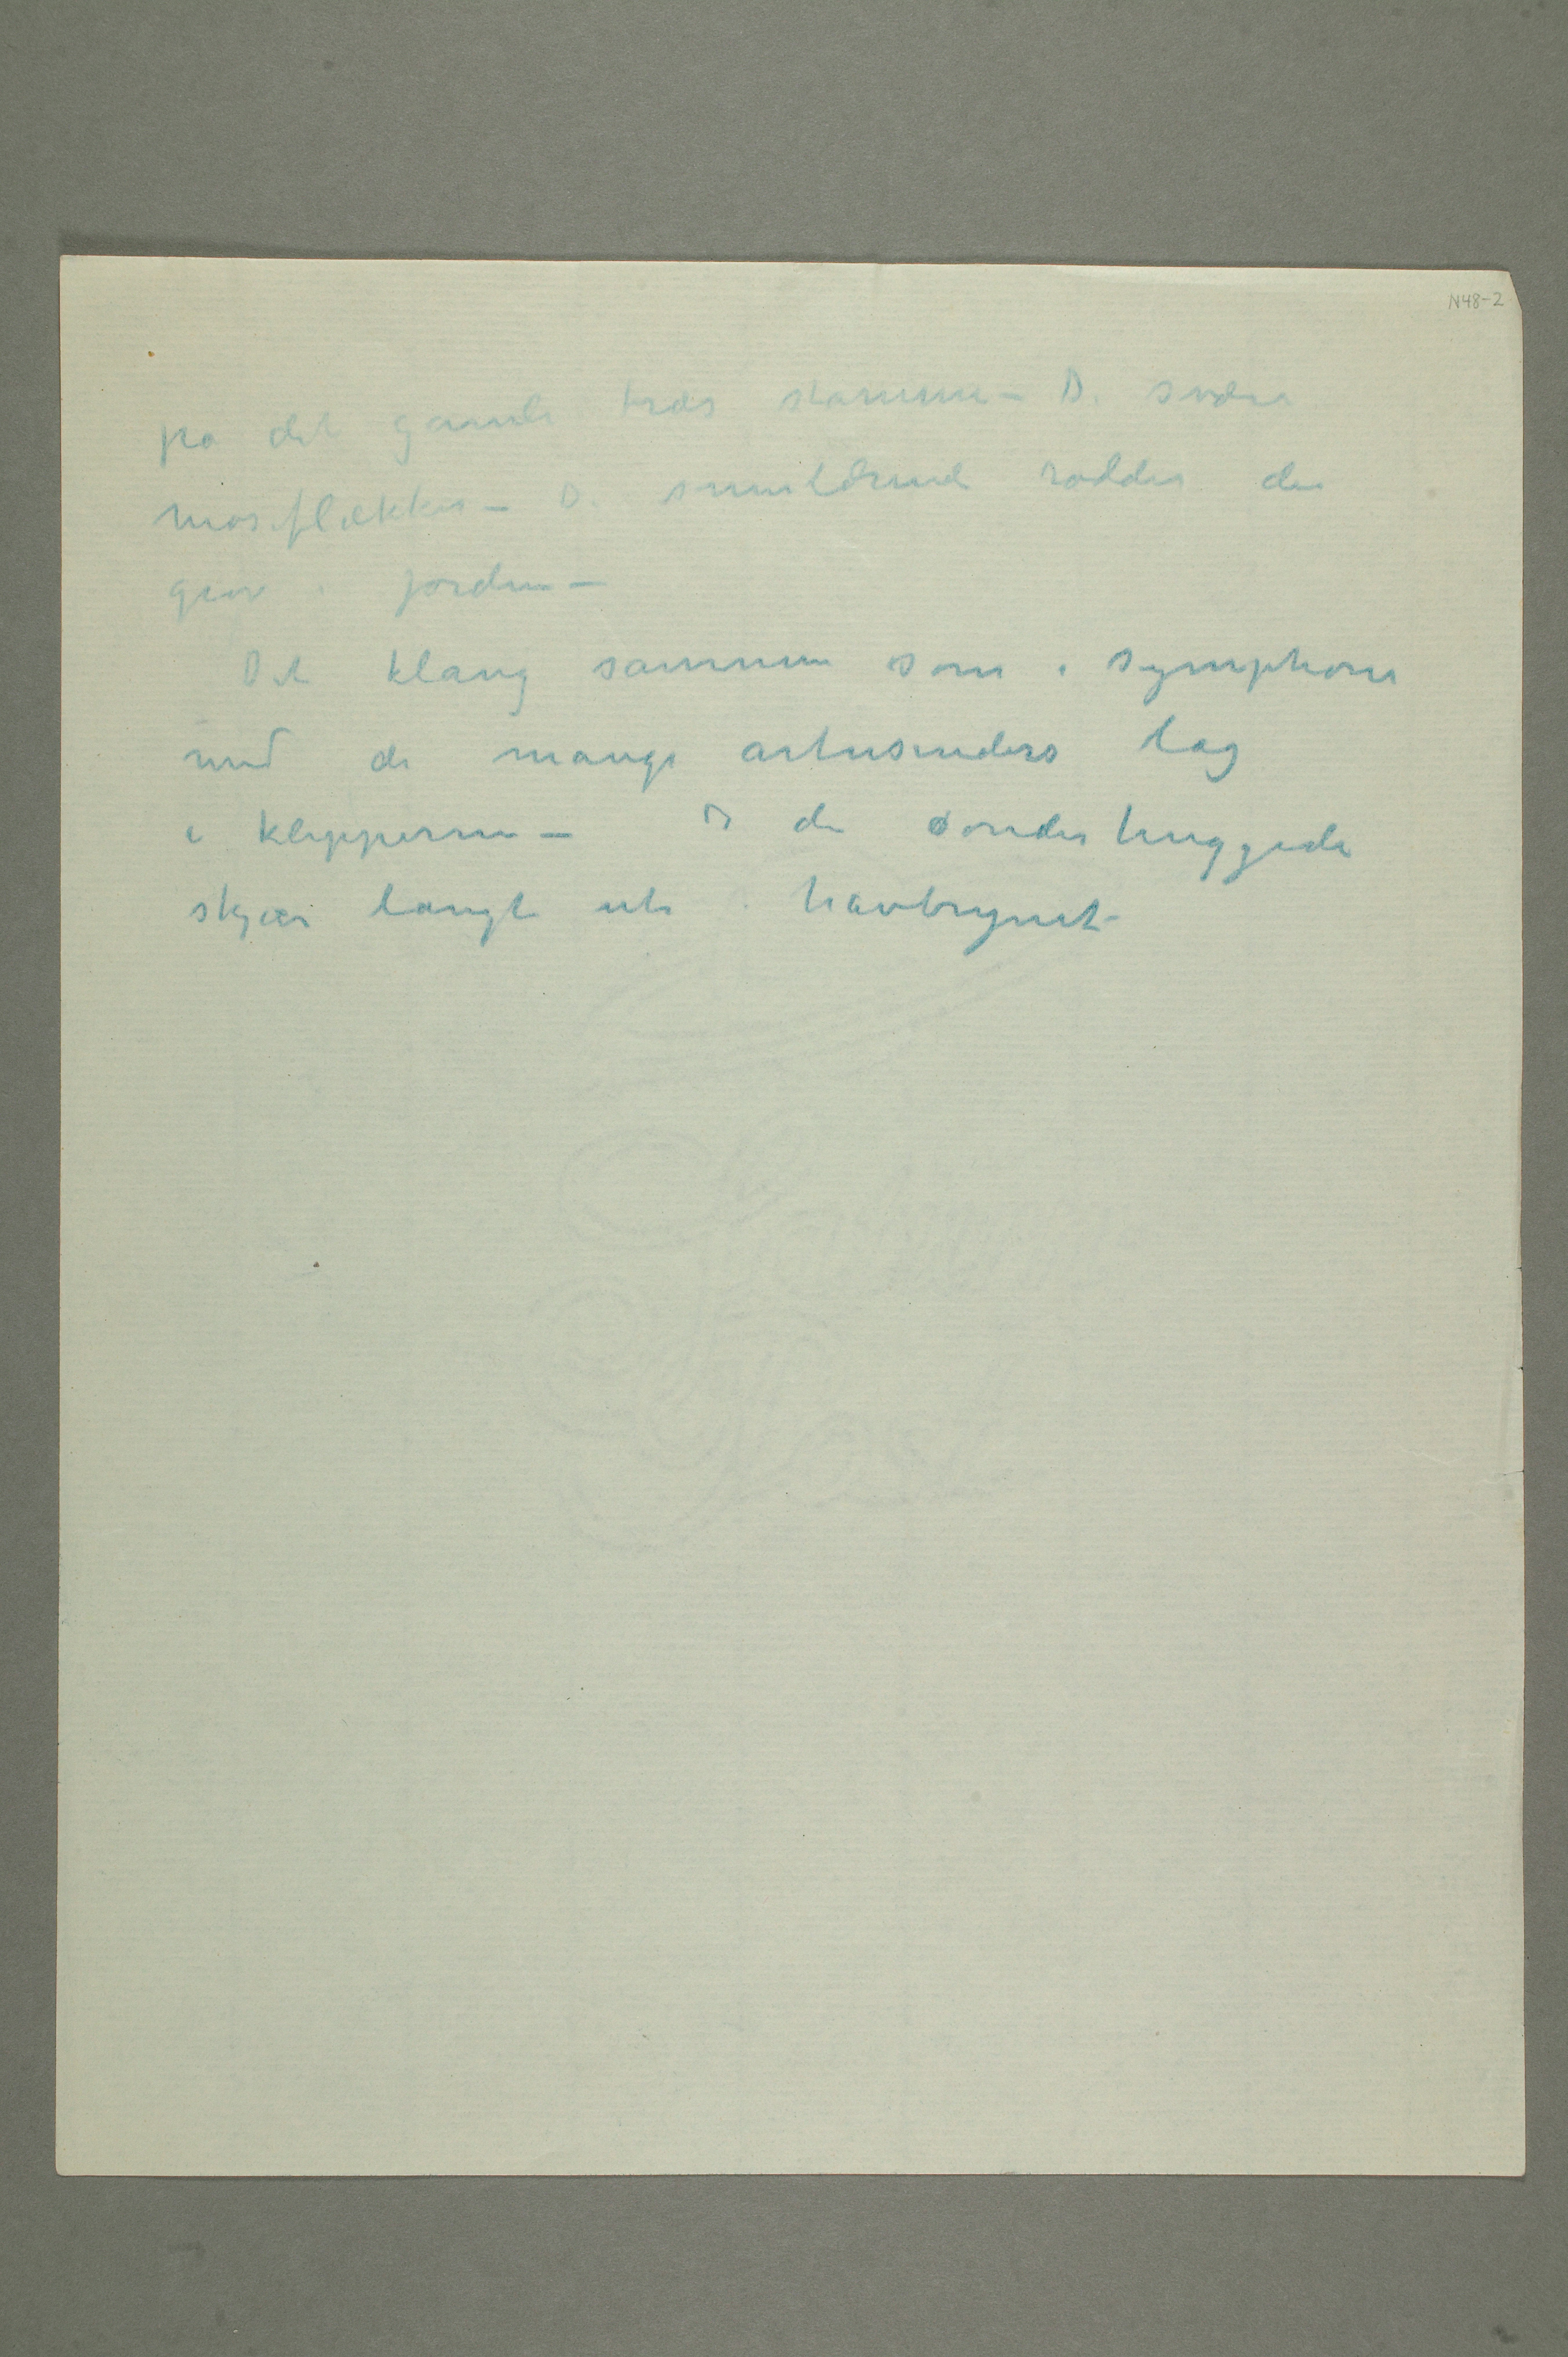 N48-2
på det gamle træs stamme – D. svære
moseflækker – D. snirklende rødder der
grov i jorden –
Det klang sammen som i symphoni
med de mange artusenders lag
i klipperne – og de sønderhuggede
skjær langt ute i havbrynet